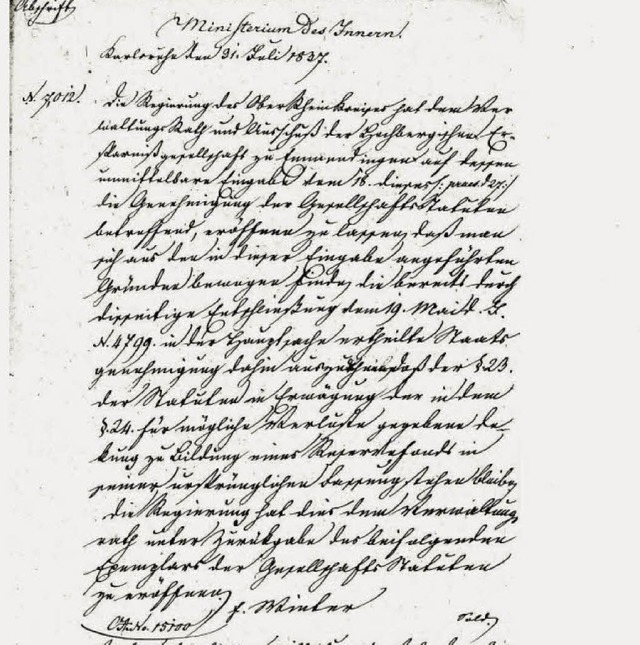 Abschrift
Ministerium des Innern.
Karlsruhe den 31. Juli 1837.
N. 7012.
Die Regierung des Oberrheinkreises hat dem Ver
waltungs Rath und Ausschuß der Hochbergschen Er-
sparnißgesellschaft zu Emmendingen auf dessen
unmittelbare Eingabe vom 18. dieses /: praes. d 27:/
die Genehmigung der Gesellschafts Statuten
betreffend, eröffnen zu lassen, daß man
sich aus den in dieser Eingabe angeführten
Gründen bewogen finde, die bereits durch
diesseitige Entschließung vom 19. Mai d. J.
N. 4799. in der Hauptsache ertheilte Staats
genehmigung dahin daß der §. 23.
der Statuten in Erwägung der in dem
§. 24. für mögliche Verluste gegebene De-
kung zu Bildung eines Reservefonds in
seiner ursprünglichen Fassung stehen bleibe,
die Regierung hat dies dem Verwaltungs
rath unter Zurückgabe des beifolgenden
Exemplars der Gesellschafts Statuten
zu eröffnen,
f. Winter
No. 15100